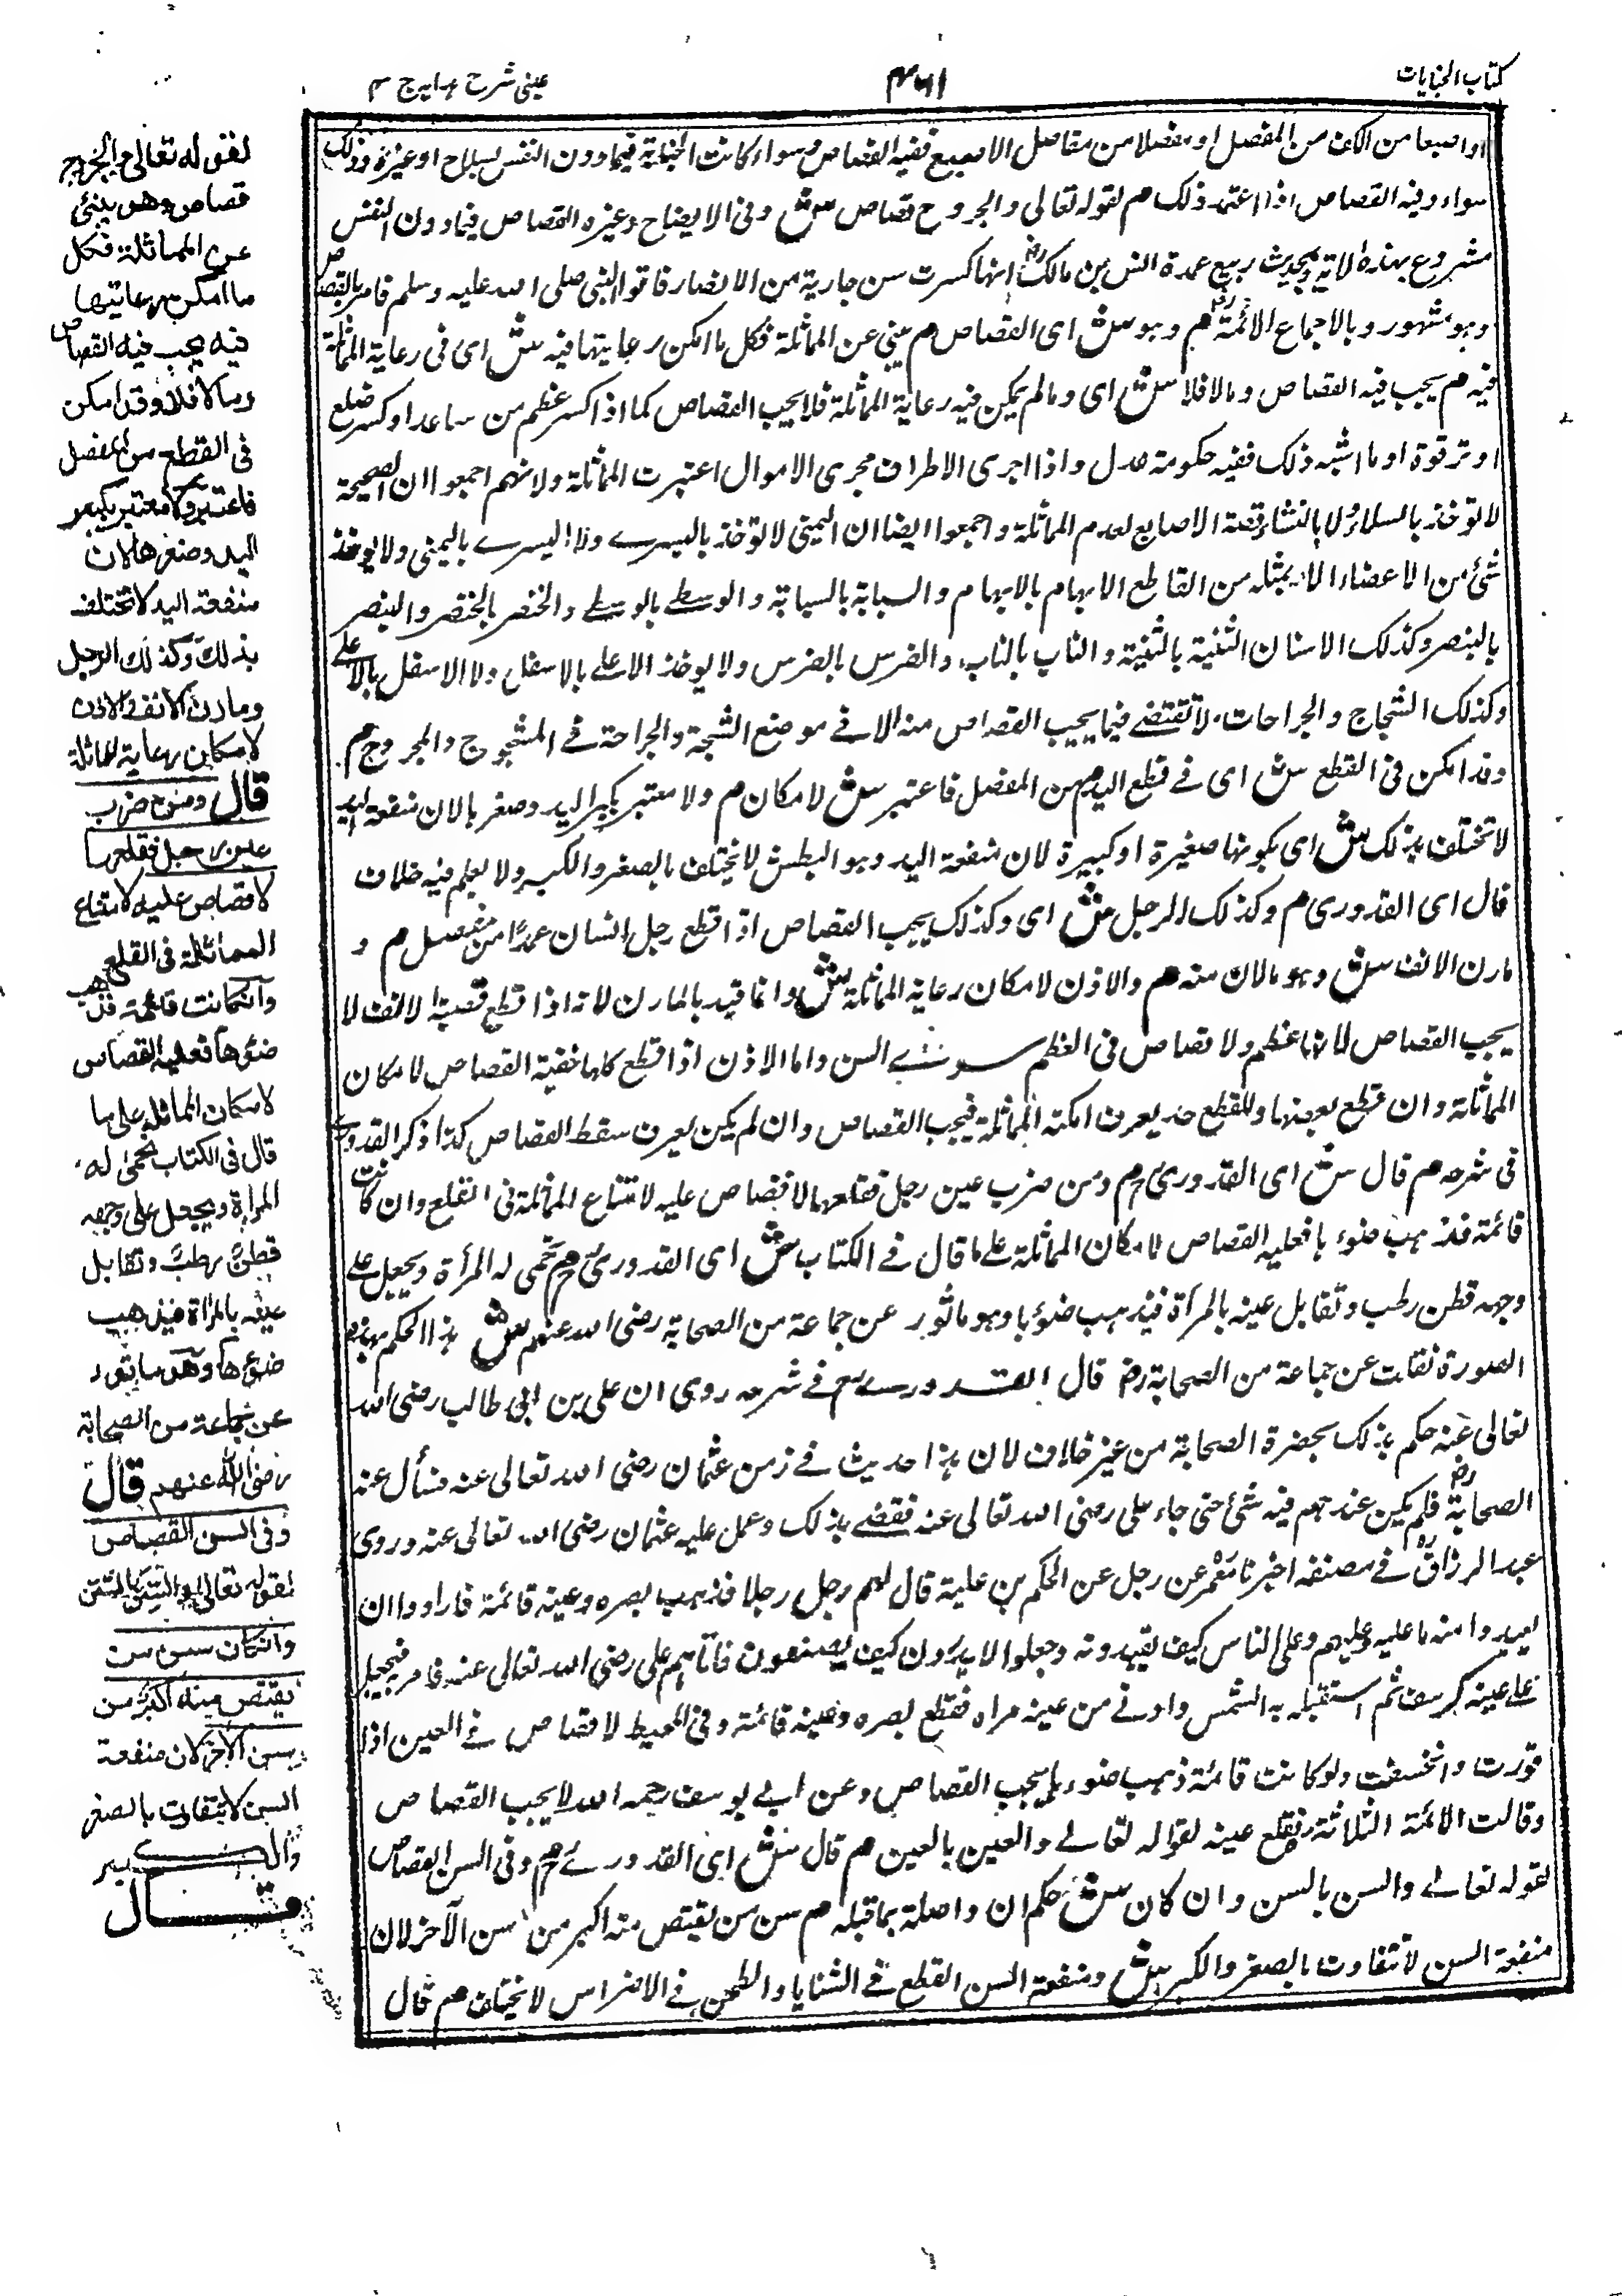 كتاب الجنايات
٤٦١
عینی شرح هدایه ج ٤
او اصبعا من الكف من المفصل او مفصلا من مفاصل الاصبع ففيه القصاص وسواء كانت الجناية فيما دون النفس بسلاح او غيره وذلك
سواء وفيه القصاص اذا اعتمد ذلك م لقوله تعالى والجروح قصاص ش وفى الايضاح وغيره القصاص فيما دون النفس
مشروع بهذه الاية وبحديث ربيع عمة انس بن مالك رض انها كسرت سن جارية من الانصار فاتوا النبي صلى الله عليه وسلم فامر بالقصاص
وهو مشهور وبالاجماع الائمة م وهو ش اى القصاص م ينبئ عن المماثلة فكل ما امكن رعايتها فيه ش اى فى رعاية المماثلة
فيه م يجب فيه القصاص وما لا فلا ش اى وما لم يمكن فيه رعاية المماثلة فلا يجب القصاص كما اذا كسر عظم من ساعد او كسر ضلع
او ترقوة او ما اشبه ذلك ففيه حكومة عدل واذا اجرى الاطراف مجرى الاموال اعتبرت المماثلة ولانهم اجمعوا ان الصحيحة
لا تؤخذ بالشلاء ولا بالناقصة الاصابع لعدم المماثلة واجمعوا ايضا ان اليمنى لا تؤخذ باليسرے ولا اليسرے باليمنى ولا يوخذ
شئ من الاعضاء الا بمثله من القاطع الابهام بالابهام والسبابة بالسبابة والوسطے بالوسطے والخنصر بالخنصر والبنصر
بالبنصر وكذلك الاسنان الثنية بالثنية والناب بالناب والضرس بالضرس ولا يوخذ الاعلے بالاسفل ولا الاسفل بالاعلے
وكذلك الشجاج والجراحات لا تقتضے فيما يجب القصاص منه الا فے موضع الشجة والجراحة فے المشجوج والمجروح م
وقد امكن فى القطع ش اى فے قطع اليد م من المفصل فاعتبر ش لامكان م ولا معتبر بكبر اليد وصغرها لان منفعة اليد
لا تختلف بذلك ش اى بكونها صغيرة او كبيرة لان منفعة اليد وهو البطش لا يختلف بالصغر والكبر ولا يعلم فيه خلاف
قال اى القدورى م وكذلك الرجل ش اى وكذلك يجب القصاص اذا قطع رجل انسان عمدًا من مفصل م و
مارن الانف ش وهو مالان منه م والاذن لامكان رعاية المماثلة ش وانما قيد بالمارن لانه اذا قطع قصبة الانف لا
يجب القصاص لانها عظم ولا قصاص فى العظم سوےٰ السن واما الاذن اذا قطع كلها ففيه القصاص لامكان
المماثلة وان قطع بعضها وللقطع حد يعرف امكنه المماثلة فيجب القصاص وان لم يكن يعرف سقط القصاص كذا ذكر القدورے
فى شرحه م قال ش اى القدورى م ومن ضرب عين رجل فقلعها لا قصاص عليه لامتناع المماثلة فى القلع وان كانت
قائمة فذهب ضوءها فعليه القصاص لامكان المماثلة علے ما قال فے الكتاب ش اى القدورى م تحمى له المرأة ويجعل علے
وجهه قطن رطب وتقابل عينه بالمرآة فيذهب ضوءها وهو ماثور عن جماعة من الصحابة رضى الله عنهم ش هذا الحكم بهذه
الصورة نقلت عن جماعة من الصحابة رض قال القدورے فے شرحه روى ان على بن ابى طالب رضى الله
تعالى عنه حكم بذلك بحضرة الصحابة من غير خلاف لان هذا حديث فے زمن عثمان رضى الله تعالى عنه فسأل عنه
الصحابة رض فلم يكن عندهم فيه شئ حتى جاء على رضى الله تعالى عنه فقضے بذلك وعمل عليه عثمان رضى الله تعالى عنه وروى
عبد الرزاق فے مصنفه اخبرنا معمر عن رجل عن الحكم بن علية قال لهم رجل رجلا فذهب بصره وعينه قائمة فارادوا ان
يقيدوا منه ما عليه وعليهم وعلى الناس كيف يقيدونه وجعلوا لا يدرون كيف يصنعون فاتاهم على رضى الله تعالى عنه فامر به فيجعل
علے عينه كرسف ثم استقبله به الشمس وادنے من عينه مراه فقطع بصره وعينه قائمة وفى المحيط لا قصاص فے العين اذا
قورت وانخسفت ولو كانت قائمة ذهب ضوءها يجب القصاص وعن ابے يوسف رحمه الله لا يجب القصاص
وقالت الائمة الثلاثة رض تقلع عينه لقوله تعالے والعين بالعين م قال ش اى القدورے م وفى السن القصاص
لقوله تعالے والسن بالسن وان كان ش حكم ان واصلة بما قبله م سن من يقتص منه اكبر من سن الآخر لان
منفعة السن لا تتفاوت بالصغر والكبر ش ومنفعة السن القطع فے الثنايا والطحن فے الاضراس لا يختلف م قال
لقوله تعالى والجروح
قصاص وهو ينبئ
عن المماثلة فكل
ما امكن رعايتها
فيه يجب فيه القصاص
وما لا فلا وقد امكن
فى القطع من المفصل
فاعتبر ولا معتبر بكبر
اليد وصغرها لان
منفعة اليد لا تختلف
بذلك وكذلك الرجل
ومارن الانف والاذن
لامكان رعاية المماثلة
قال ومن ضرب
عين رجل فقلعها
لا قصاص عليه لامتناع
المماثلة فى القلع
وان كانت قائمة فذهب
ضوءها فعليه القصاص
لامكان المماثلة على ما
قال فى الكتاب تحمى له
المرأة ويجعل على وجهه
قطن رطب وتقابل
عينه بالمرآة فيذهب
ضوءها وهو ماثور
عن جماعة من الصحابة
رضى الله عنهم قال
وفى السن القصاص
لقوله تعالى والسن بالسن
وان كان سن من
يقتص منه اكبر من
سن الآخر لان منفعة
السن لا تتفاوت بالصغر
والكبير
قال